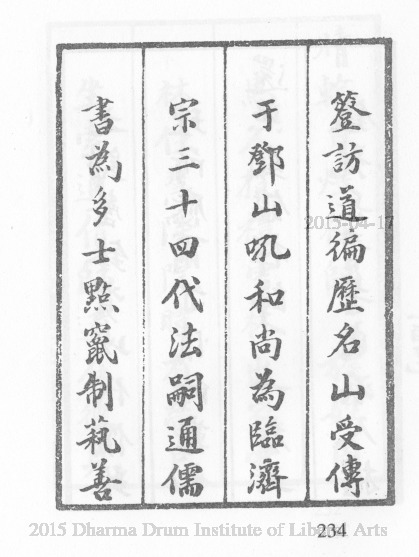 簦訪道徧歷名山受傳
于鄧山吼和尚為臨濟
宗三十四代法嗣通儒
書為多士點竄制蓺善
2015-04-17
2015 Dharma Drum Institute of Liberal Arts
234